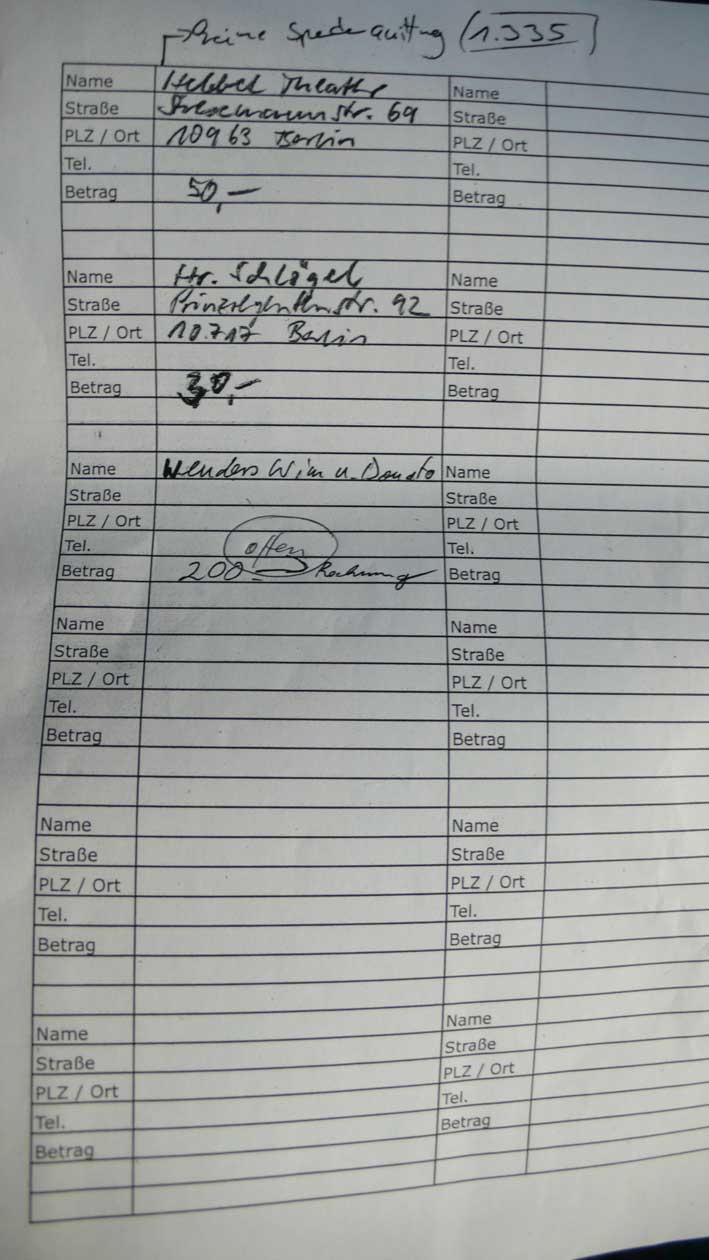 keine Spendenquittung (1.335)
Name Hebbel Theater
Straße Stresemannstr. 69
PLZ / Ort 10963 Berlin
Tel.
Betrag 50,—
Name Hr. Schlögel
Straße Prinzregentenstr. 92
PLZ / Ort 10.717 Berlin
Tel.
Betrag 30,—
Name Wenders Wim u. Donata
Straße
PLZ / Ort
Tel. offen
Betrag 200 Rechnung
Name
Straße
PLZ / Ort
Tel.
Betrag
Name
Straße
PLZ / Ort
Tel.
Betrag
Name
Straße
PLZ / Ort
Tel.
Betrag
Name
Straße
PLZ / Ort
Tel.
Betrag
Name
Straße
PLZ / Ort
Tel.
Betrag
Name
Straße
PLZ / Ort
Tel.
Betrag
Name
Straße
PLZ / Ort
Tel.
Betrag
Name
Straße
PLZ / Ort
Tel.
Betrag
Name
Straße
PLZ / Ort
Tel.
Betrag